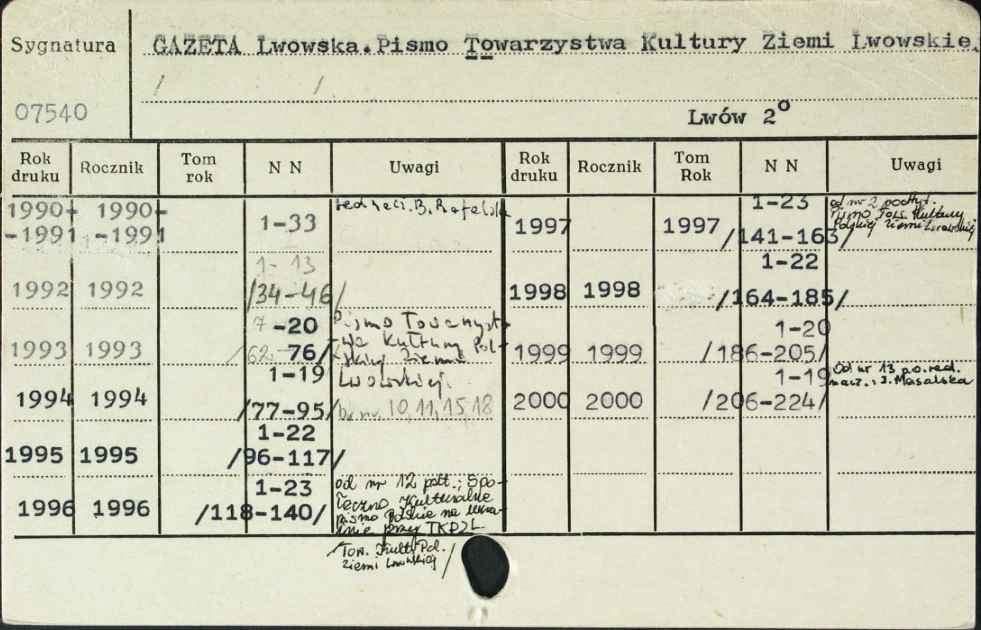 Sygnatura
GAZETA Lwowska.Pismo Towarzystwa Kultury Ziemi Lwowskie
/ /
07540
Lwów 2°
Rok druku Rocznik Tom rok N N Uwagi Rok druku Rocznik Tom Rok N N Uwagi
1990- 1990- 1-33 red. nacz. B.
-1991 -1991
1992 1992 1-13
/34-46/
1993 1993 7-20 Pismo Towarzyst-
/62-76/ wa Kultury Pol-
skiej Ziemi
Lwowskiej.
1994 1994 1-19
/77-95/ br. nr. 10, 11, 15, 18
1995 1995 1-22
/96-117/
1996 1996 1-23 od nr 12 podt.: Spo-
/118-140/ łeczno Kulturalne
pismo Polskie na Ukra-
inie przy TKPZL
/Tow. Kult. Pol.
Ziemi Lwowskiej/
1997 1997 1-23 od nr 2 podtyt.
/141-163/ Pismo Tow. Kultury
Polskiej Ziemi Lwowskiej
1998 1998 1-22
/164-185/
1999 1999 1-20
/186-205/
2000 2000 1-19 Od nr 13 p.o. red.
/206-224/ nacz.: I. Masalska